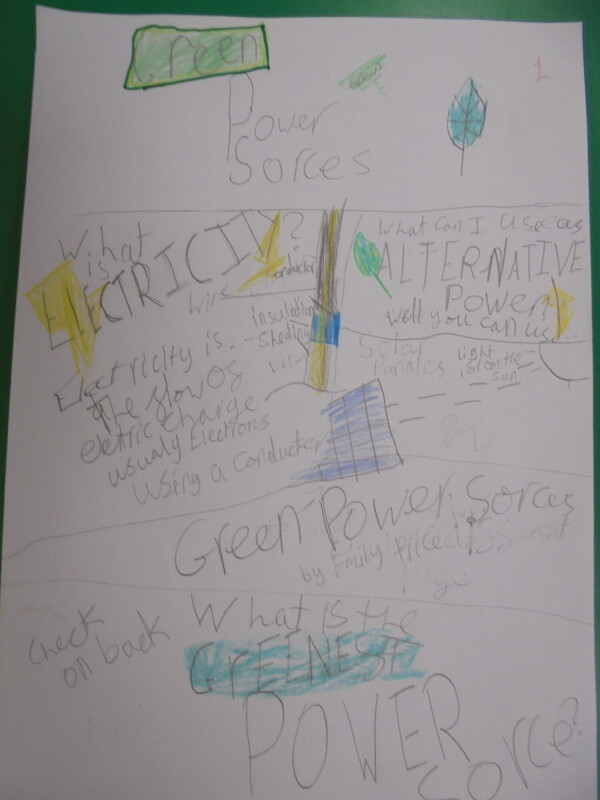 Green
Power
Sorces
1
What
is
ELECTRICITY?
conductor
Wire
insulation
Sheding
Electricity is...
the flow of
electric charge
usualy Electrons
Using a Conducter
What Can I use as
ALTERNATIVE
Power?
Well you can use
Solar
Pannles
light
is from the
sun
Green Power Sorces
by Emily
Check
on back
What is the
GREENEST
POWER
Sorce?